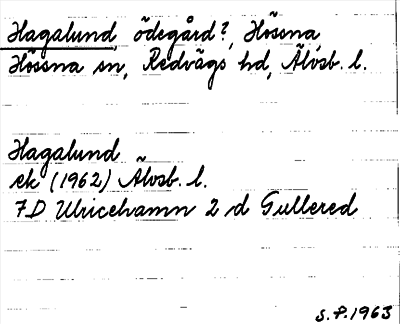 Hagalund ödegård?, Hössna
Hössna sn, Redvägs hd, Älvsb. l.
Hagalund
ek (1962) Älvsb. l.
7D Ulricehamn 2 d Gullered
S.P. 1963